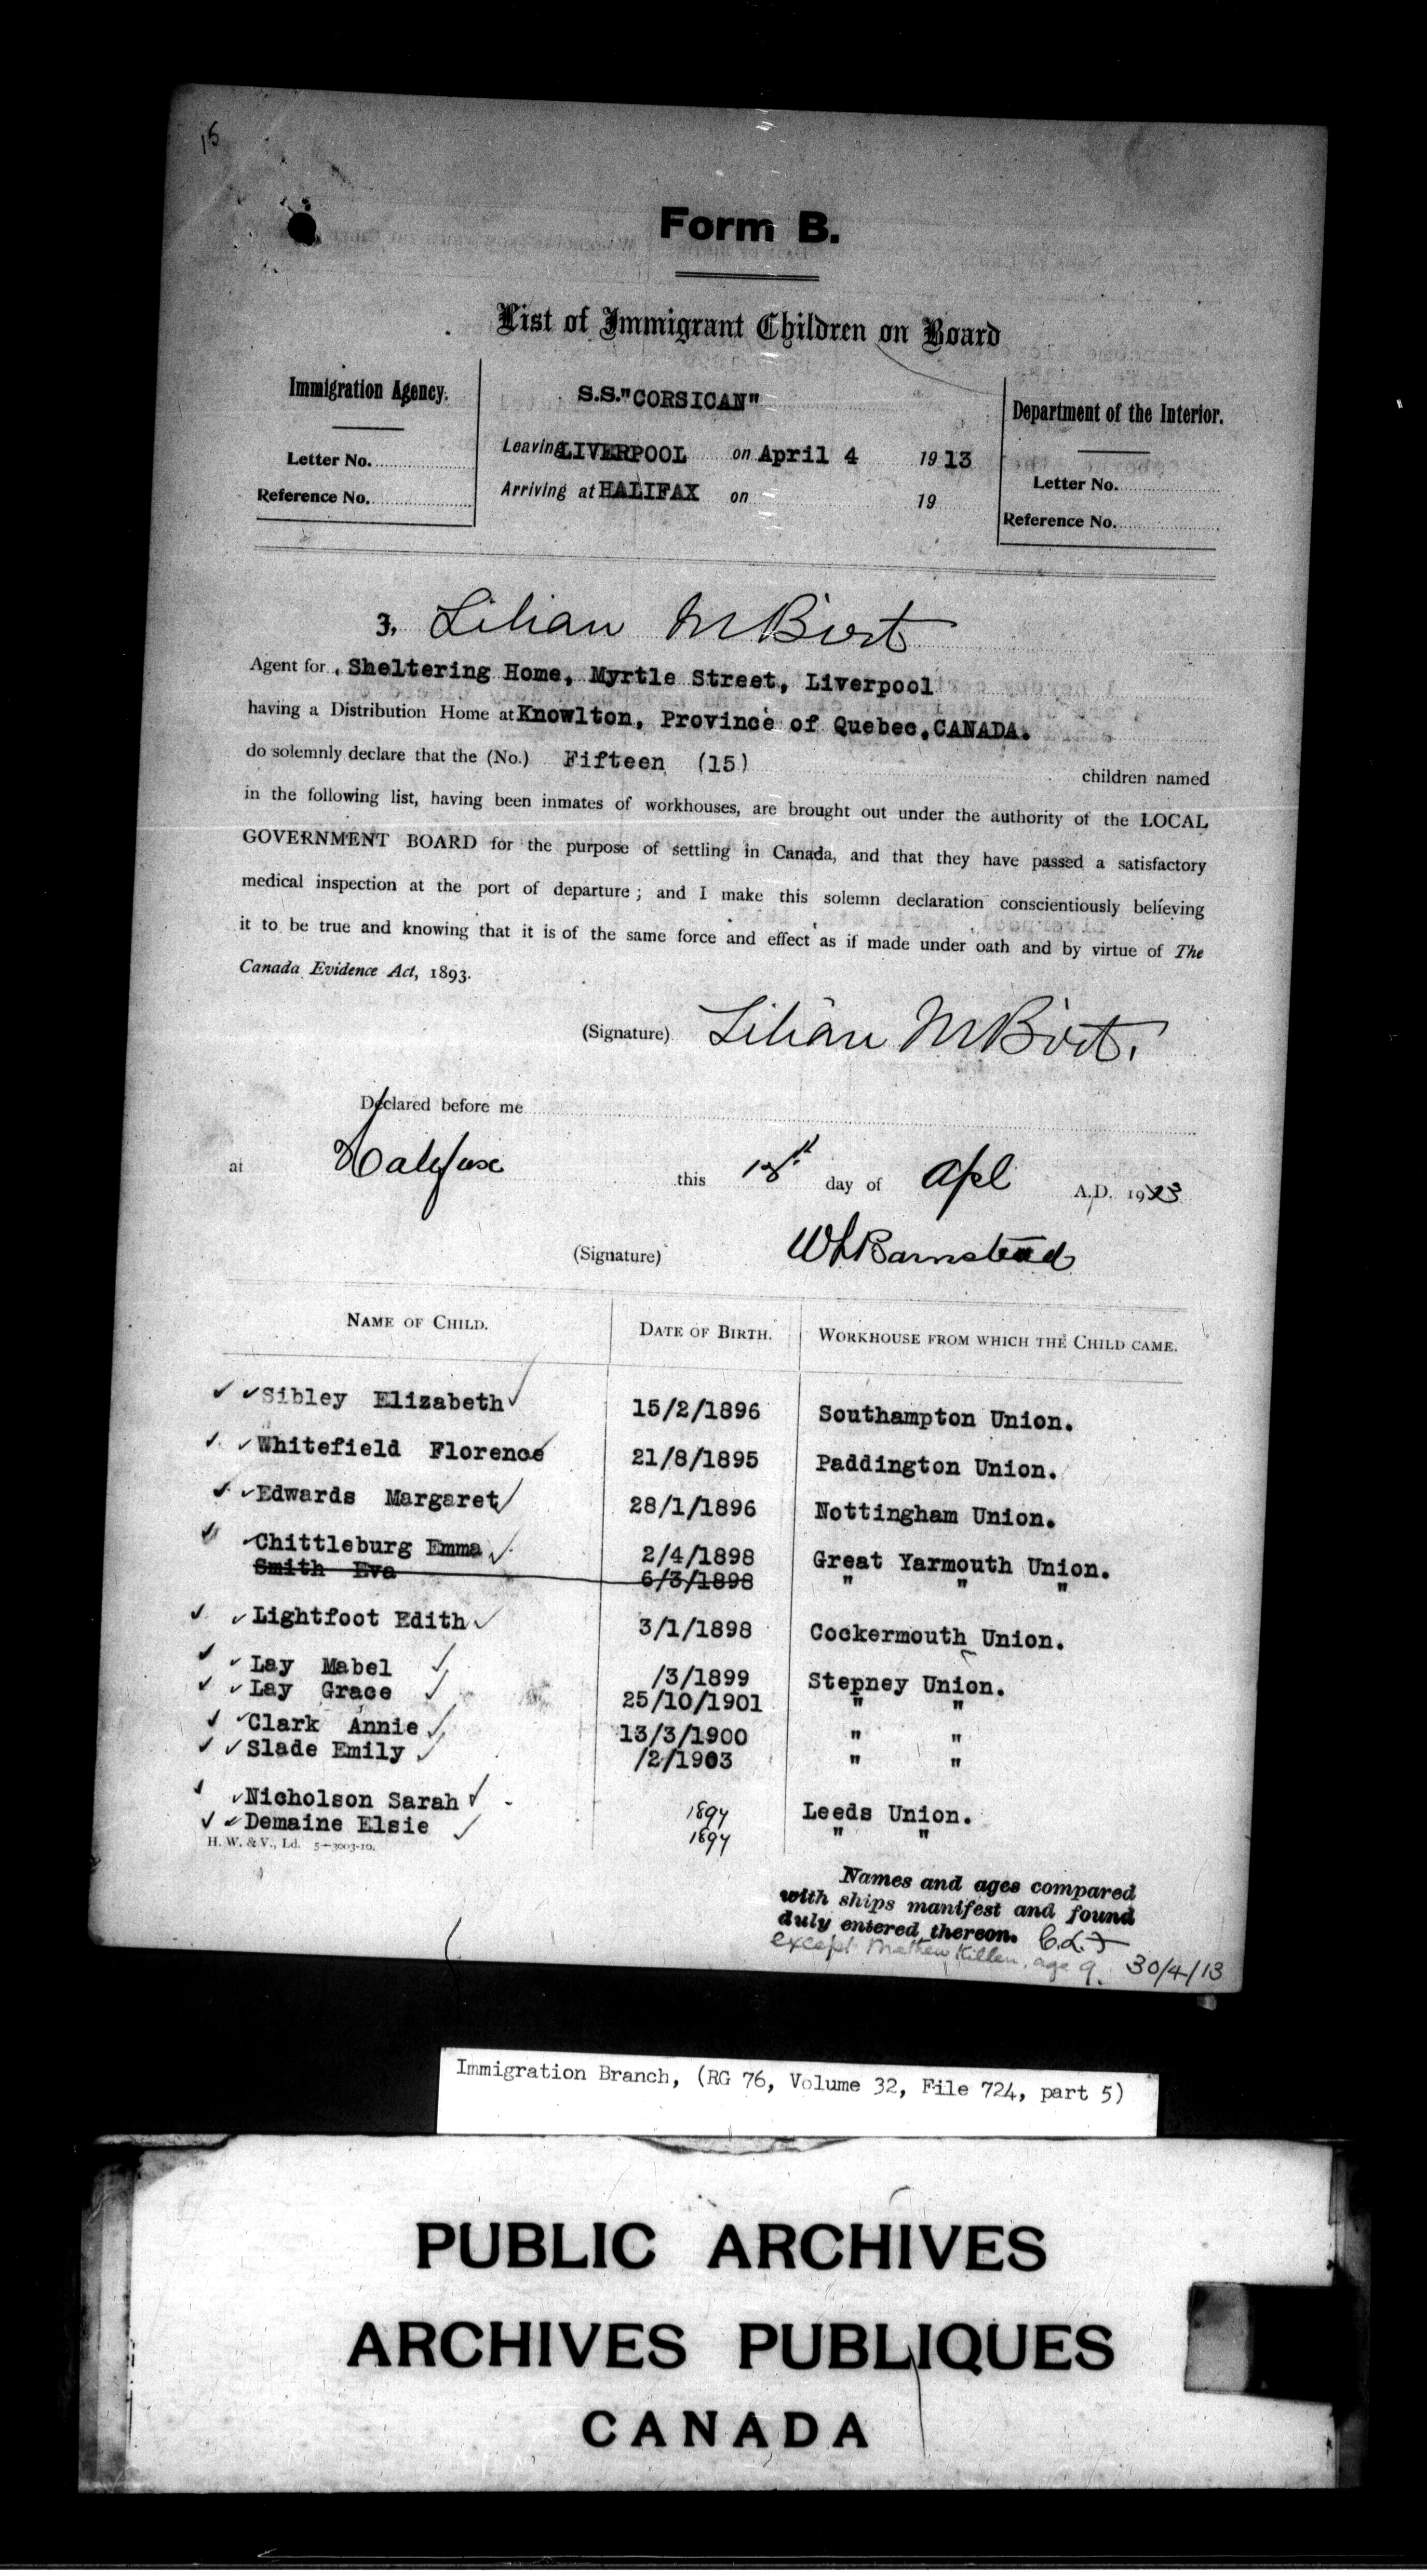 15
Form B.
List of Immigrant Children on Board
Immigration Agency.
Letter No.
Reference No.
S.S."CORSICAN"
Leaving LIVERPOOL on April 4 1913
Arriving at HALIFAX on 19
Department of the Interior.
Letter No.
Reference No.
I, Lilian M Birt
Agent for Sheltering Home, Myrtle Street, Liverpool
having a Distribution Home at Knowlton, Province of Quebec, CANADA.
do solemnly declare that the (No.) Fifteen (15) children named
in the following list, having been inmates of workhouses, are brought out under the authority of the LOCAL
GOVERNMENT BOARD for the purpose of settling in Canada, and that they have passed a satisfactory
medical inspection at the port of departure; and I make this solemn declaration conscientiously believing
it to be true and knowing that it is of the same force and effect as if made under oath and by virtue of The
Canada Evidence Act, 1893.
(Signature) Lilian M Birt.
Declared before me
at Halifax this day of Apl A.D. 1913
(Signature) WLBarnstead
NAME OF CHILD. DATE OF BIRTH. WORKHOUSE FROM WHICH THE CHILD CAME.
Sibley Elizabeth 15/2/1896 Southampton Union.
Whitefield Florence 21/8/1895 Paddington Union.
Edwards Margaret 28/1/1896 Nottingham Union.
Chittleburg Emma 2/4/1898 Great Yarmouth Union.
Smith Eva 6/3/1898 " " "
Lightfoot Edith 3/1/1898 Cockermouth Union.
Lay Mabel /3/1899 Stepney Union.
Lay Grace 25/10/1901 " "
Clark Annie 13/3/1900 " "
Slade Emily /2/1903 " "
Nicholson Sarah 1897 Leeds Union.
Demaine Elsie 1897 " "
H. W. & V., Ld. 5—3003-10.
Names and ages compared
with ships manifest and found
duly entered thereon.
except Mathew Killen, age 9. 30/4/13
Immigration Branch, (RG 76, Volume 32, File 724, part 5)
PUBLIC ARCHIVES
ARCHIVES PUBLIQUES
CANADA